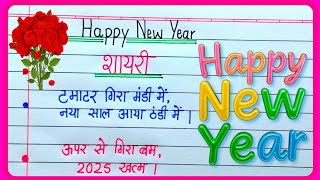 Happy New Year
शायरी
टमाटर गिरा मंडी में,
नया साल आया ठंडी में।
ऊपर से गिरा बम,
2025 खत्म।
Happy
New
Year